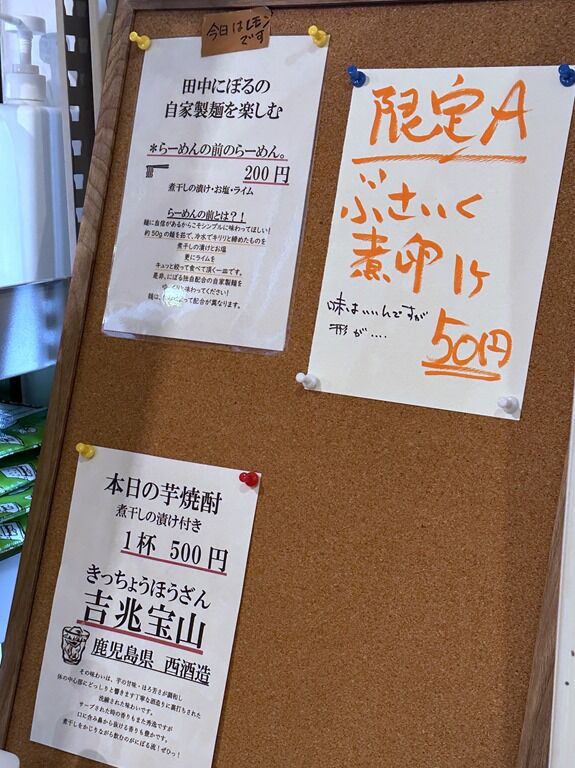 今日はレモン
です
田中にぼるの
自家製麺を楽しむ
＊らーめんの前のらーめん。
200円
煮干しの漬け・お塩・ライム
らーめんの前とは？！
麺に自信があるからこそシンプルに味わってほしい！
約50gの麺を茹で、冷水でキリリと締めたものを
煮干しの漬けとお塩
更にライムを
キュッと絞って食べて頂く一皿です。
是非、にぼる独自配合の自家製麺を
味わってください！
麺は、配合が異なります。
限定A
ぶさいく
煮卵1ヶ
味はいいんですが
形が....
50円
本日の芋焼酎
煮干しの漬け付き
1杯 500円
きっちょうほうざん
吉兆宝山
鹿児島県 西酒造
その味わいは、芋の甘味・ほろ苦さが調和し
体の中心部にどっしりと響きます丁寧な酒造りに裏打ちされた
洗練された味わいです。
サーブされた時の香りもまた秀逸ですが
口に含み鼻から抜ける香りも豊かです。
煮干しをかじりながら飲むのがにぼる流！ぜひっ！